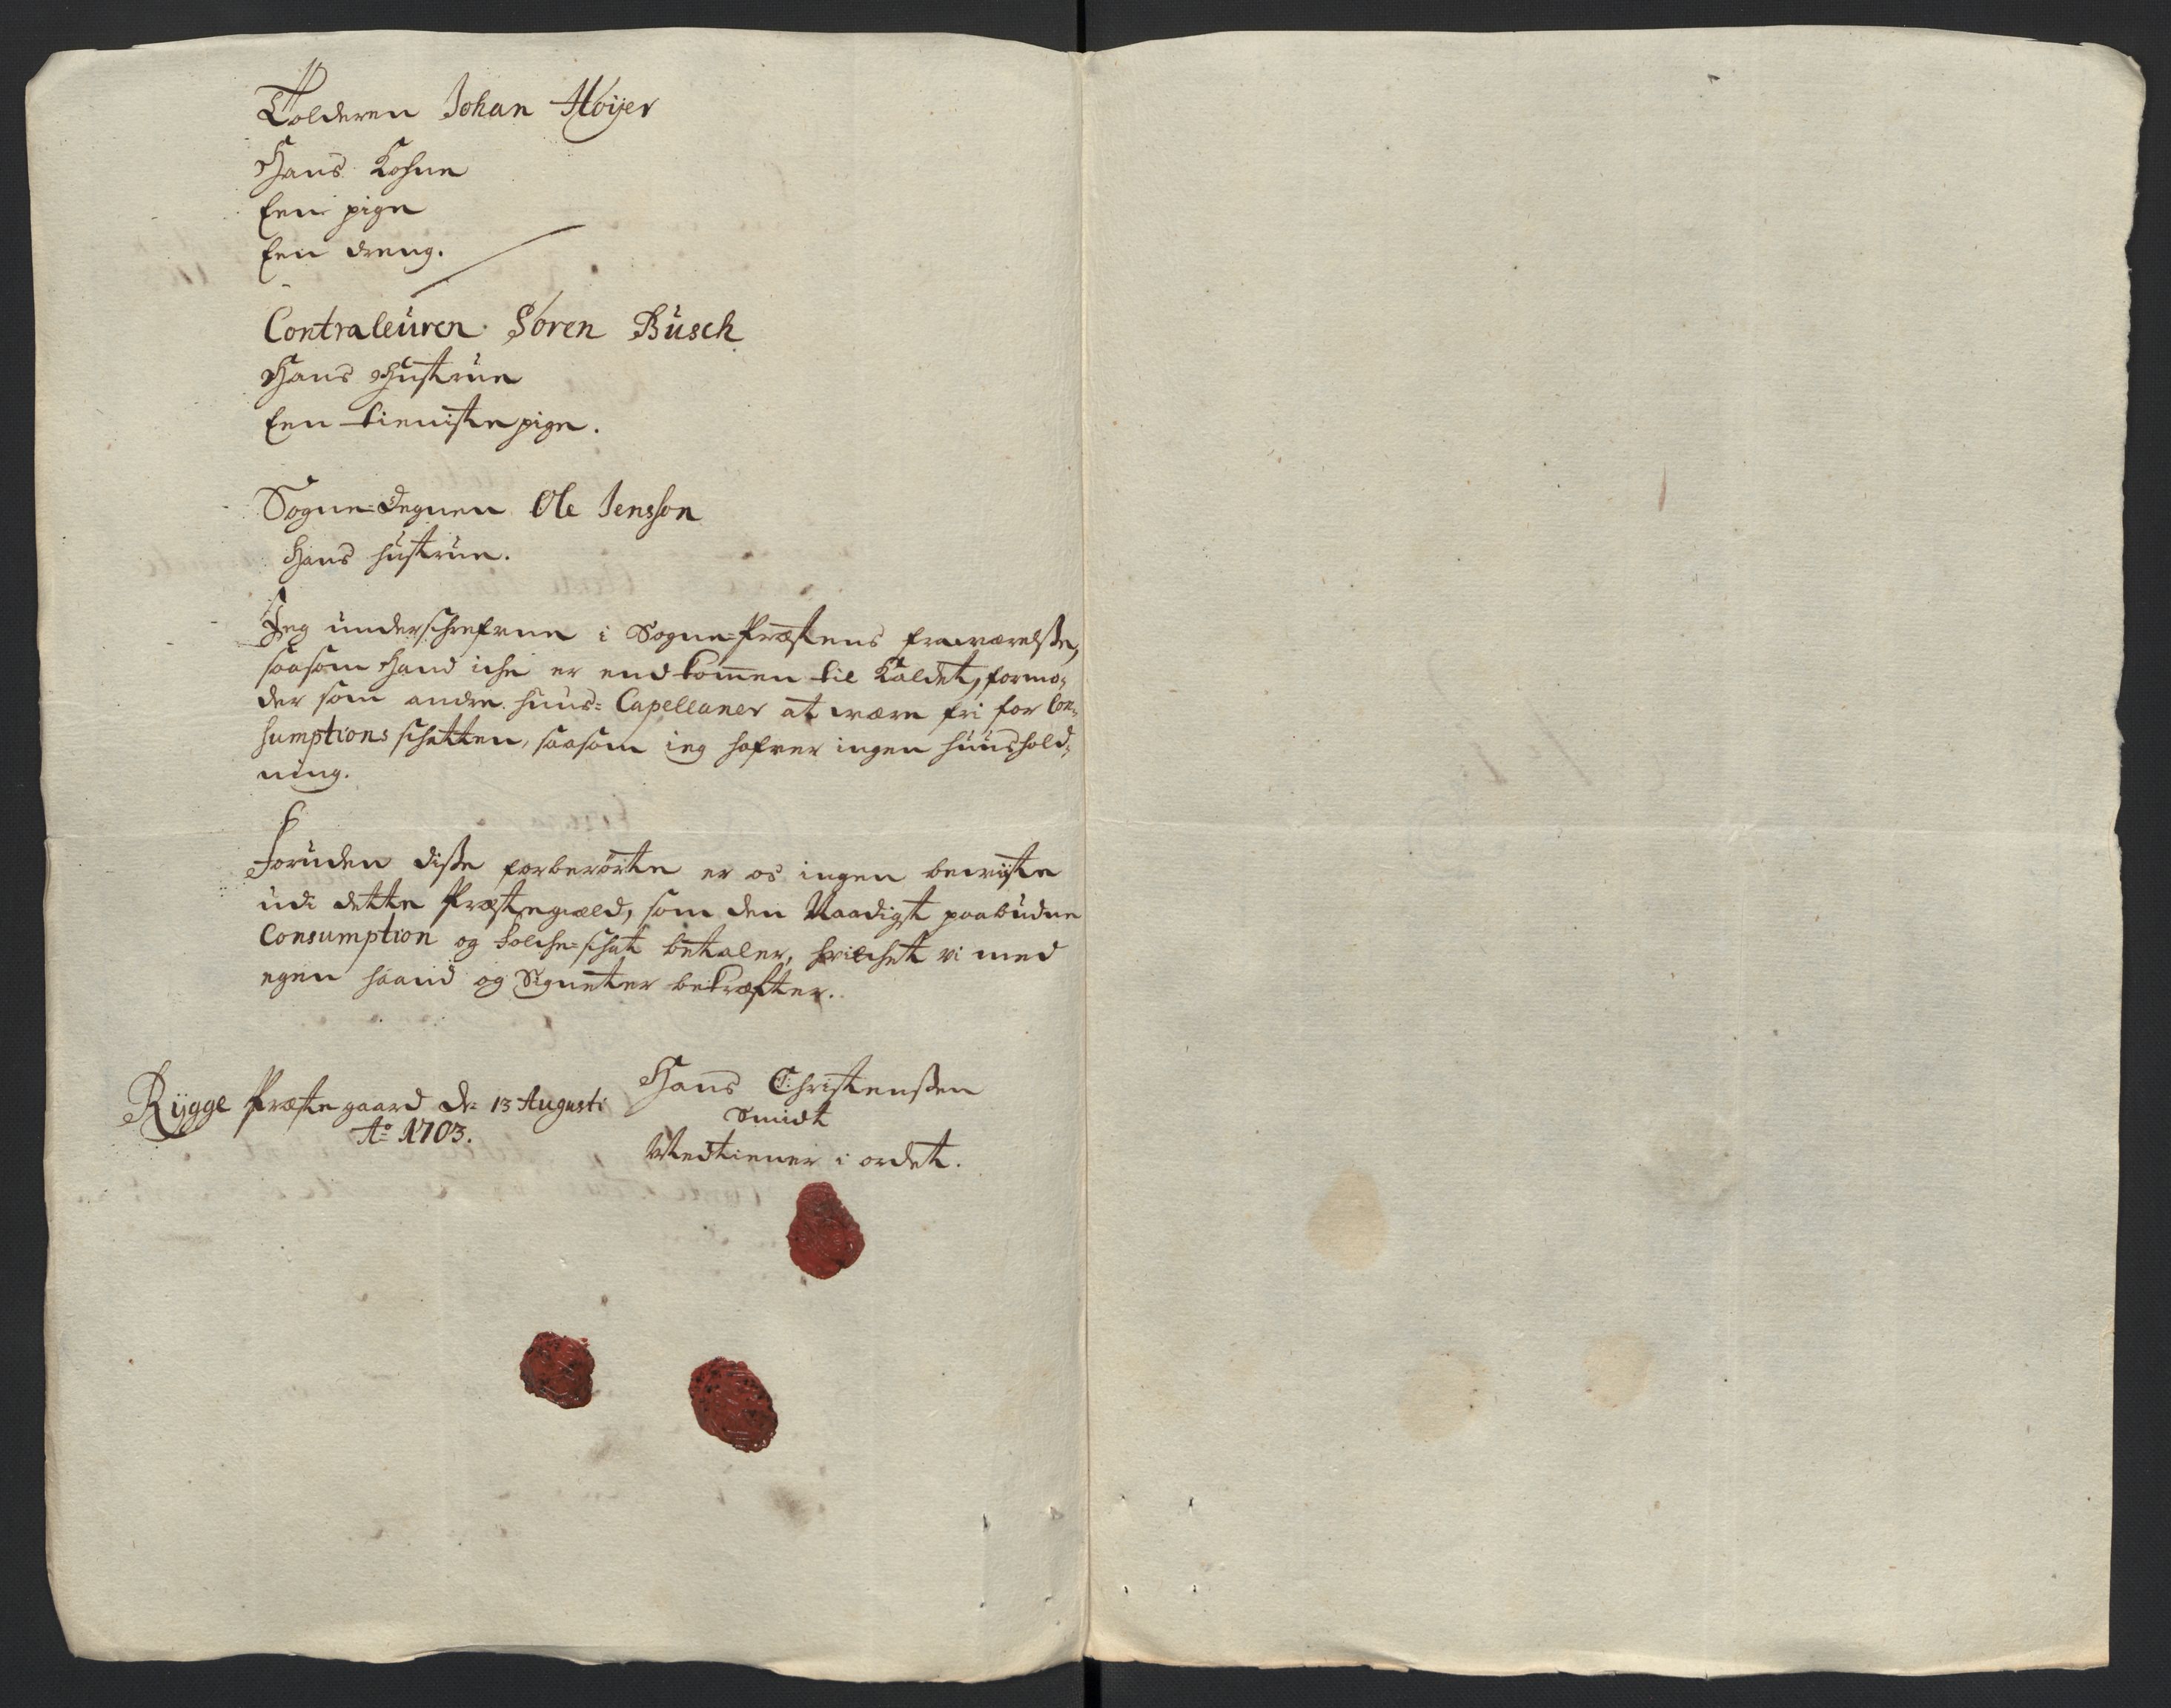 Tolderen Johan Höijer
Hans Kohne
Een pige
Een dreng.
Contraleuren Sören Busch
Hans Hustrue
Een tieniste pige.
Sogne-Degnen Ole Jensson
Hans hustrue.
Jeg underschrefvne i Sogne-Præstens fraværelsse,
saasom Hand iche er end kommen til Kaldet, formo-
der som andre huus-Capellaner at være fri for Con-
sumptions schatten, saasom ieg hafver ingen huushold-
ning.
Foruden disse forberörte er os ingen beviiste
udi dette Præstegield, som den Naadigst paabudne
Consumption og Folche-schat betaler, hvilchet vi med
egen haand og Signeter bekræfter.
Rÿgge Præstegaard d: 13 Augusti
Ao 1703.
Hans Christenssen
Smidt
Medtiener i ordet.